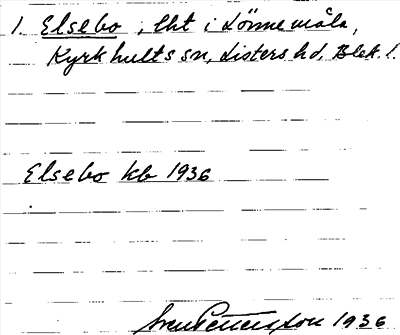 1. Elsebo, lht i Lönnemåla,
Kyrkhults sn, Listers hd, Blek. l.
Elsebo kb 1936
Sven Pettersson 1936